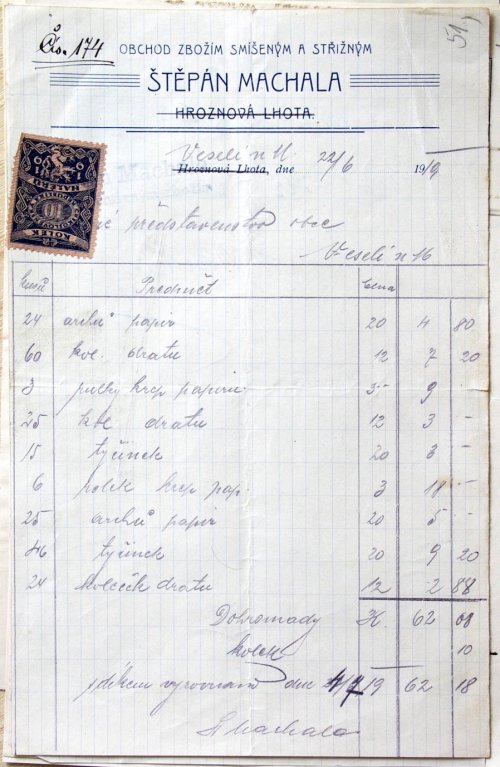 Čís. 174
51.
OBCHOD ZBOŽÍM SMÍŠENÝM A STŘIŽNÝM
ŠTĚPÁN MACHALA
HROZNOVÁ LHOTA.
Veselí n M. 22/6
Hroznová Lhota, dne 1919
KOLEK
10
představenstvo obce
Veselí n M
kusů Předmět Cena
24 archů papír 20 4 80
60 kol. dratu 12 7 20
3 půlky krep papíru 3 - 9 -
25 kol dratu 12 3 -
15 tyčinek 20 3 -
6 půlek krep pap. 3 18 -
25 archů papír 20 5 -
46 tyčinek 20 9 20
24 koleček dratu 12 2 88
Dohromady K. 62 08
kolek 10
s díkem vyrovnáno dne 4/7 19 62 18
Machala